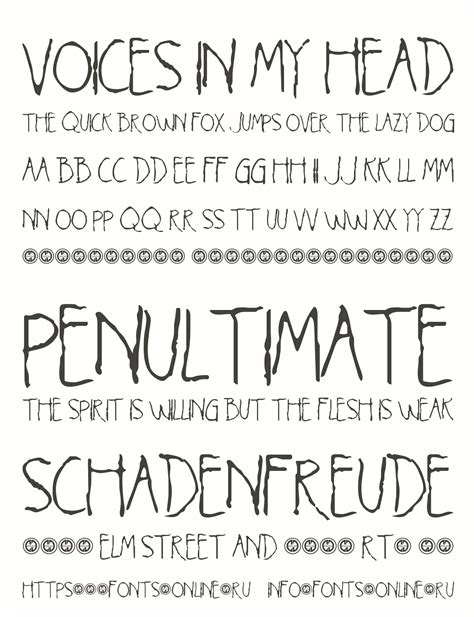 VOICES IN MY HEAD
THE QUICK BROWN FOX JUMPS OVER THE LAZY DOG
AA BB CC DD EE FF GG HH II JJ KK LL MM
NN OO PP QQ RR SS TT UU VV WW XX YY ZZ
PENULTIMATE
THE SPIRIT IS WILLING BUT THE FLESH IS WEAK
SCHADENFREUDE
ELM STREET AND RT
HTTPS FONTS ONLINE RU INFO FONTS ONLINE RU